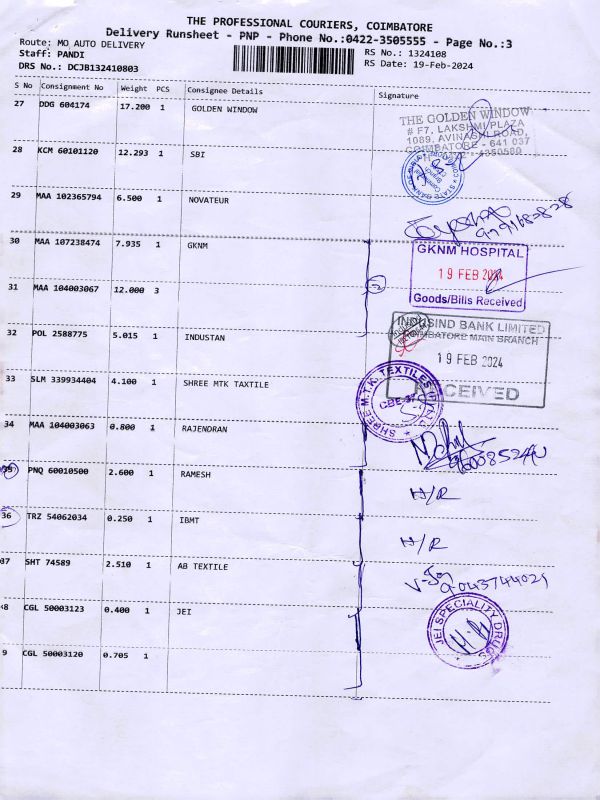 THE PROFESSIONAL COURIERS, COIMBATORE
Delivery Runsheet - PNP - Phone No.:0422-3505555 - Page No.:3
Route: MO AUTO DELIVERY
RS No.: 1324108
Staff: PANDI
RS Date: 19-Feb-2024
DRS No.: DCJB132410803
S No Consignment No Weight PCS Consignee Details Signature
27 DDG 604174 17.200 1 GOLDEN WINDOW
THE GOLDEN WINDOW
# F7, LAKSHMI PLAZA
1089, AVINASHI ROAD,
COIMBATORE - 641 037
28 KCM 60101120 12.293 1 SBI
29 MAA 102365794 6.500 1 NOVATEUR
30 MAA 107238474 7.935 1 GKNM
GKNM HOSPITAL
19 FEB 2024
Goods/Bills Received
31 MAA 104003067 12.000 3
32 POL 2588775 5.015 1 INDUSTAN
INDUSIND BANK LIMITED
COIMBATORE MAIN BRANCH
19 FEB 2024
RECEIVED
33 SLM 339934404 4.100 1 SHREE MTK TAXTILE
SHREE M.T.K. TEXTILES (P) LTD
CBE-37
34 MAA 104003063 0.800 1 RAJENDRAN
35 PNQ 60010500 2.600 1 RAMESH
H/R
36 TRZ 54062034 0.250 1 IBMT
H/R
37 SHT 74589 2.510 1 AB TEXTILE
38 CGL 50003123 0.400 1 JEI
JEI SPECIALITY DRUGS
9 CGL 50003120 0.705 1